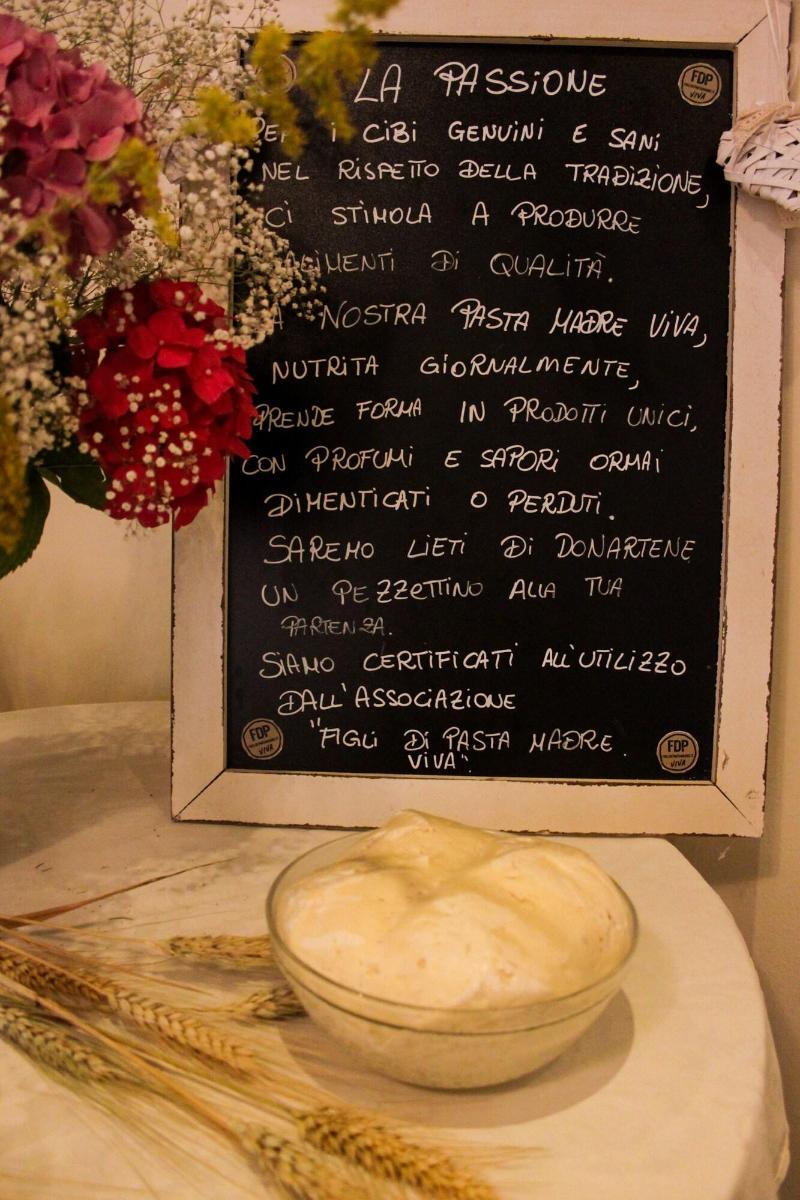 LA PASSIONE
PER I CIBI GENUINI E SANI
NEL RISPETTO DELLA TRADIZIONE,
CI STIMOLA A PRODURRE
ALIMENTI DI QUALITÀ.
LA NOSTRA PASTA MADRE VIVA,
NUTRITA GIORNALMENTE,
PRENDE FORMA IN PRODOTTI UNICI,
CON PROFUMI E SAPORI ORMAI
DIMENTICATI O PERDUTI.
SAREMO LIETI DI DONARTENE
UN PEZZETTINO ALLA TUA
PARTENZA.
SIAMO CERTIFICATI ALL'UTILIZZO
DALL'ASSOCIAZIONE
"FIGLI DI PASTA MADRE
VIVA".
FDP
VIVA
FDP
VIVA
FDP
VIVA